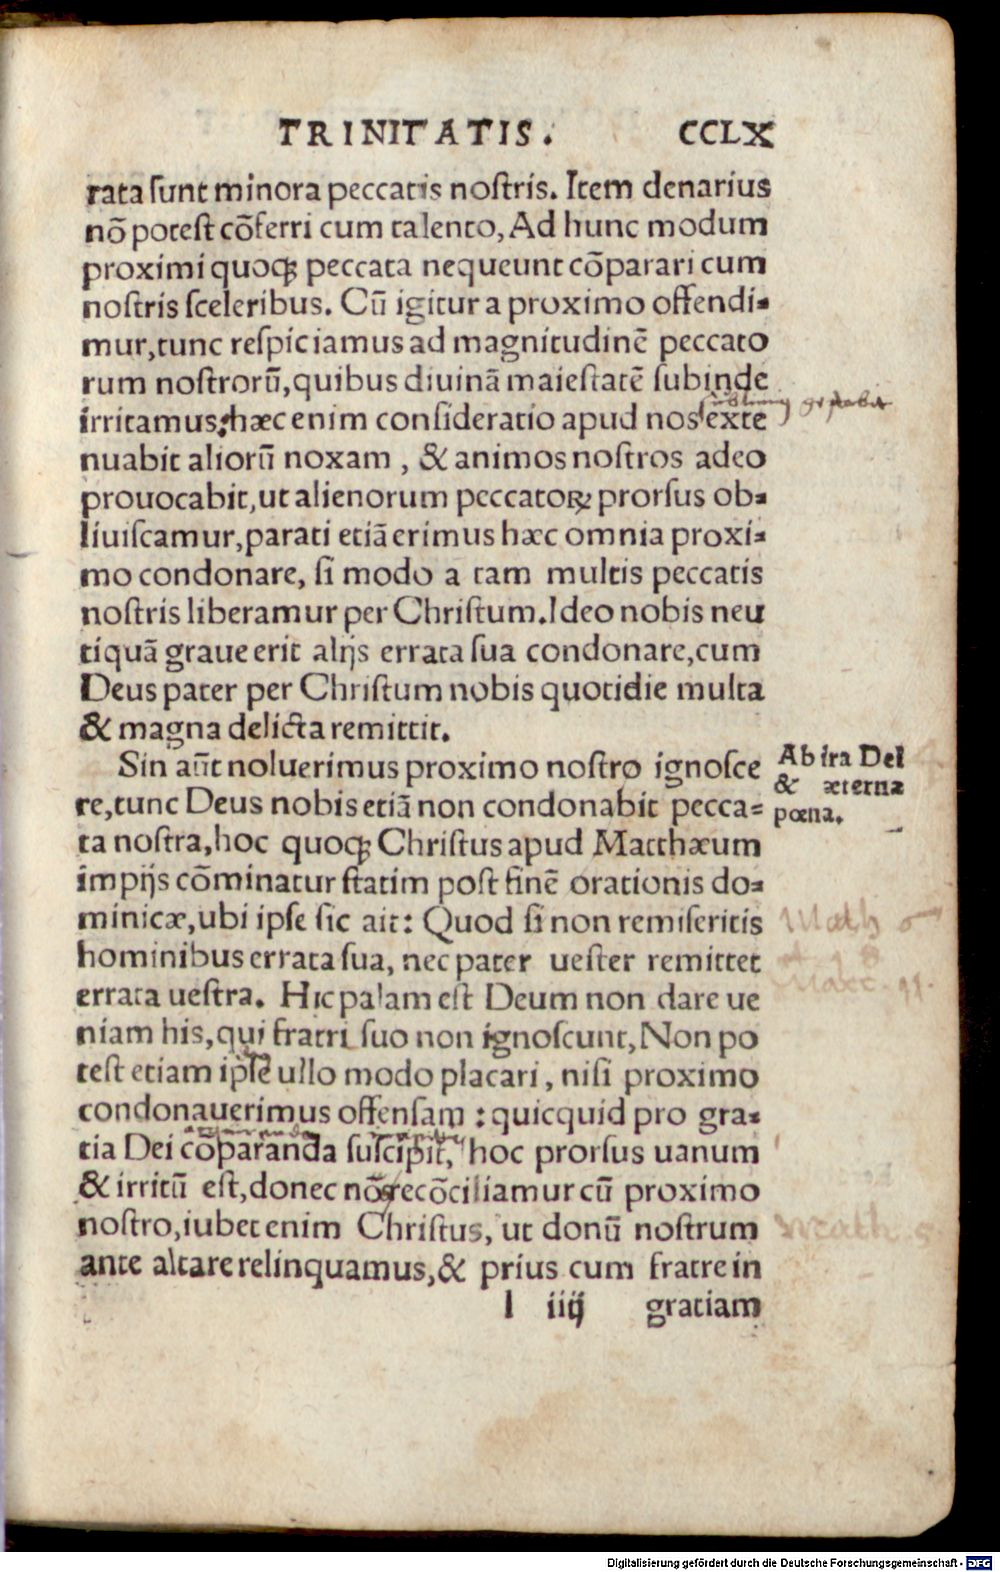 TRINITATIS. CCLX
rata sunt minora peccatis nostris. Item denarius
nõ potest cõferri cum talento, Ad hunc modum
proximi quoqꝫ peccata nequeunt cõparari cum
nostris sceleribus. Cũ igitur a proximo offendi⸗
mur, tunc respiciamus ad magnitudinẽ peccato
rum nostrorũ, quibus diuinã maiestatẽ subinde
irritamus: hæc enim consideratio apud nos exte
nuabit aliorũ noxam, & animos nostros adeo
prouocabit, ut alienorum peccatoꝝ prorsus ob⸗
liuiscamur, parati etiã erimus hæc omnia proxi⸗
mo condonare, si modo a tam multis peccatis
nostris liberamur per Christum. Ideo nobis neu
tiquã graue erit alijs errata sua condonare, cum
Deus pater per Christum nobis quotidie multa
& magna delicta remittit.
Sin aũt noluerimus proximo nostro ignosce
re, tunc Deus nobis etiã non condonabit pecca⸗
ta nostra, hoc quoqꝫ Christus apud Matthæum
impijs cõminatur statim post finẽ orationis do⸗
minicæ, ubi ipse sic ait: Quod si non remiseritis
hominibus errata sua, nec pater uester remittet
errata uestra. Hic palam est Deum non dare ue
niam his, qui fratri suo non ignoscunt, Non po
test etiam ipse ullo modo placari, nisi proximo
condonauerimus offensam: quicquid pro gra⸗
tia Dei cõparanda suscipit, hoc prorsus uanum
& irritũ est, donec nõ recõciliamur cũ proximo
nostro, iubet enim Christus, ut donũ nostrum
ante altare relinquamus, & prius cum fratre in
l iiij gratiam
Ab ira Dei
& æterna
pœna.
Math 5
Marc. 11.
Math. 5.
Digitalisierung gefördert durch die Deutsche Forschungsgemeinschaft - DFG